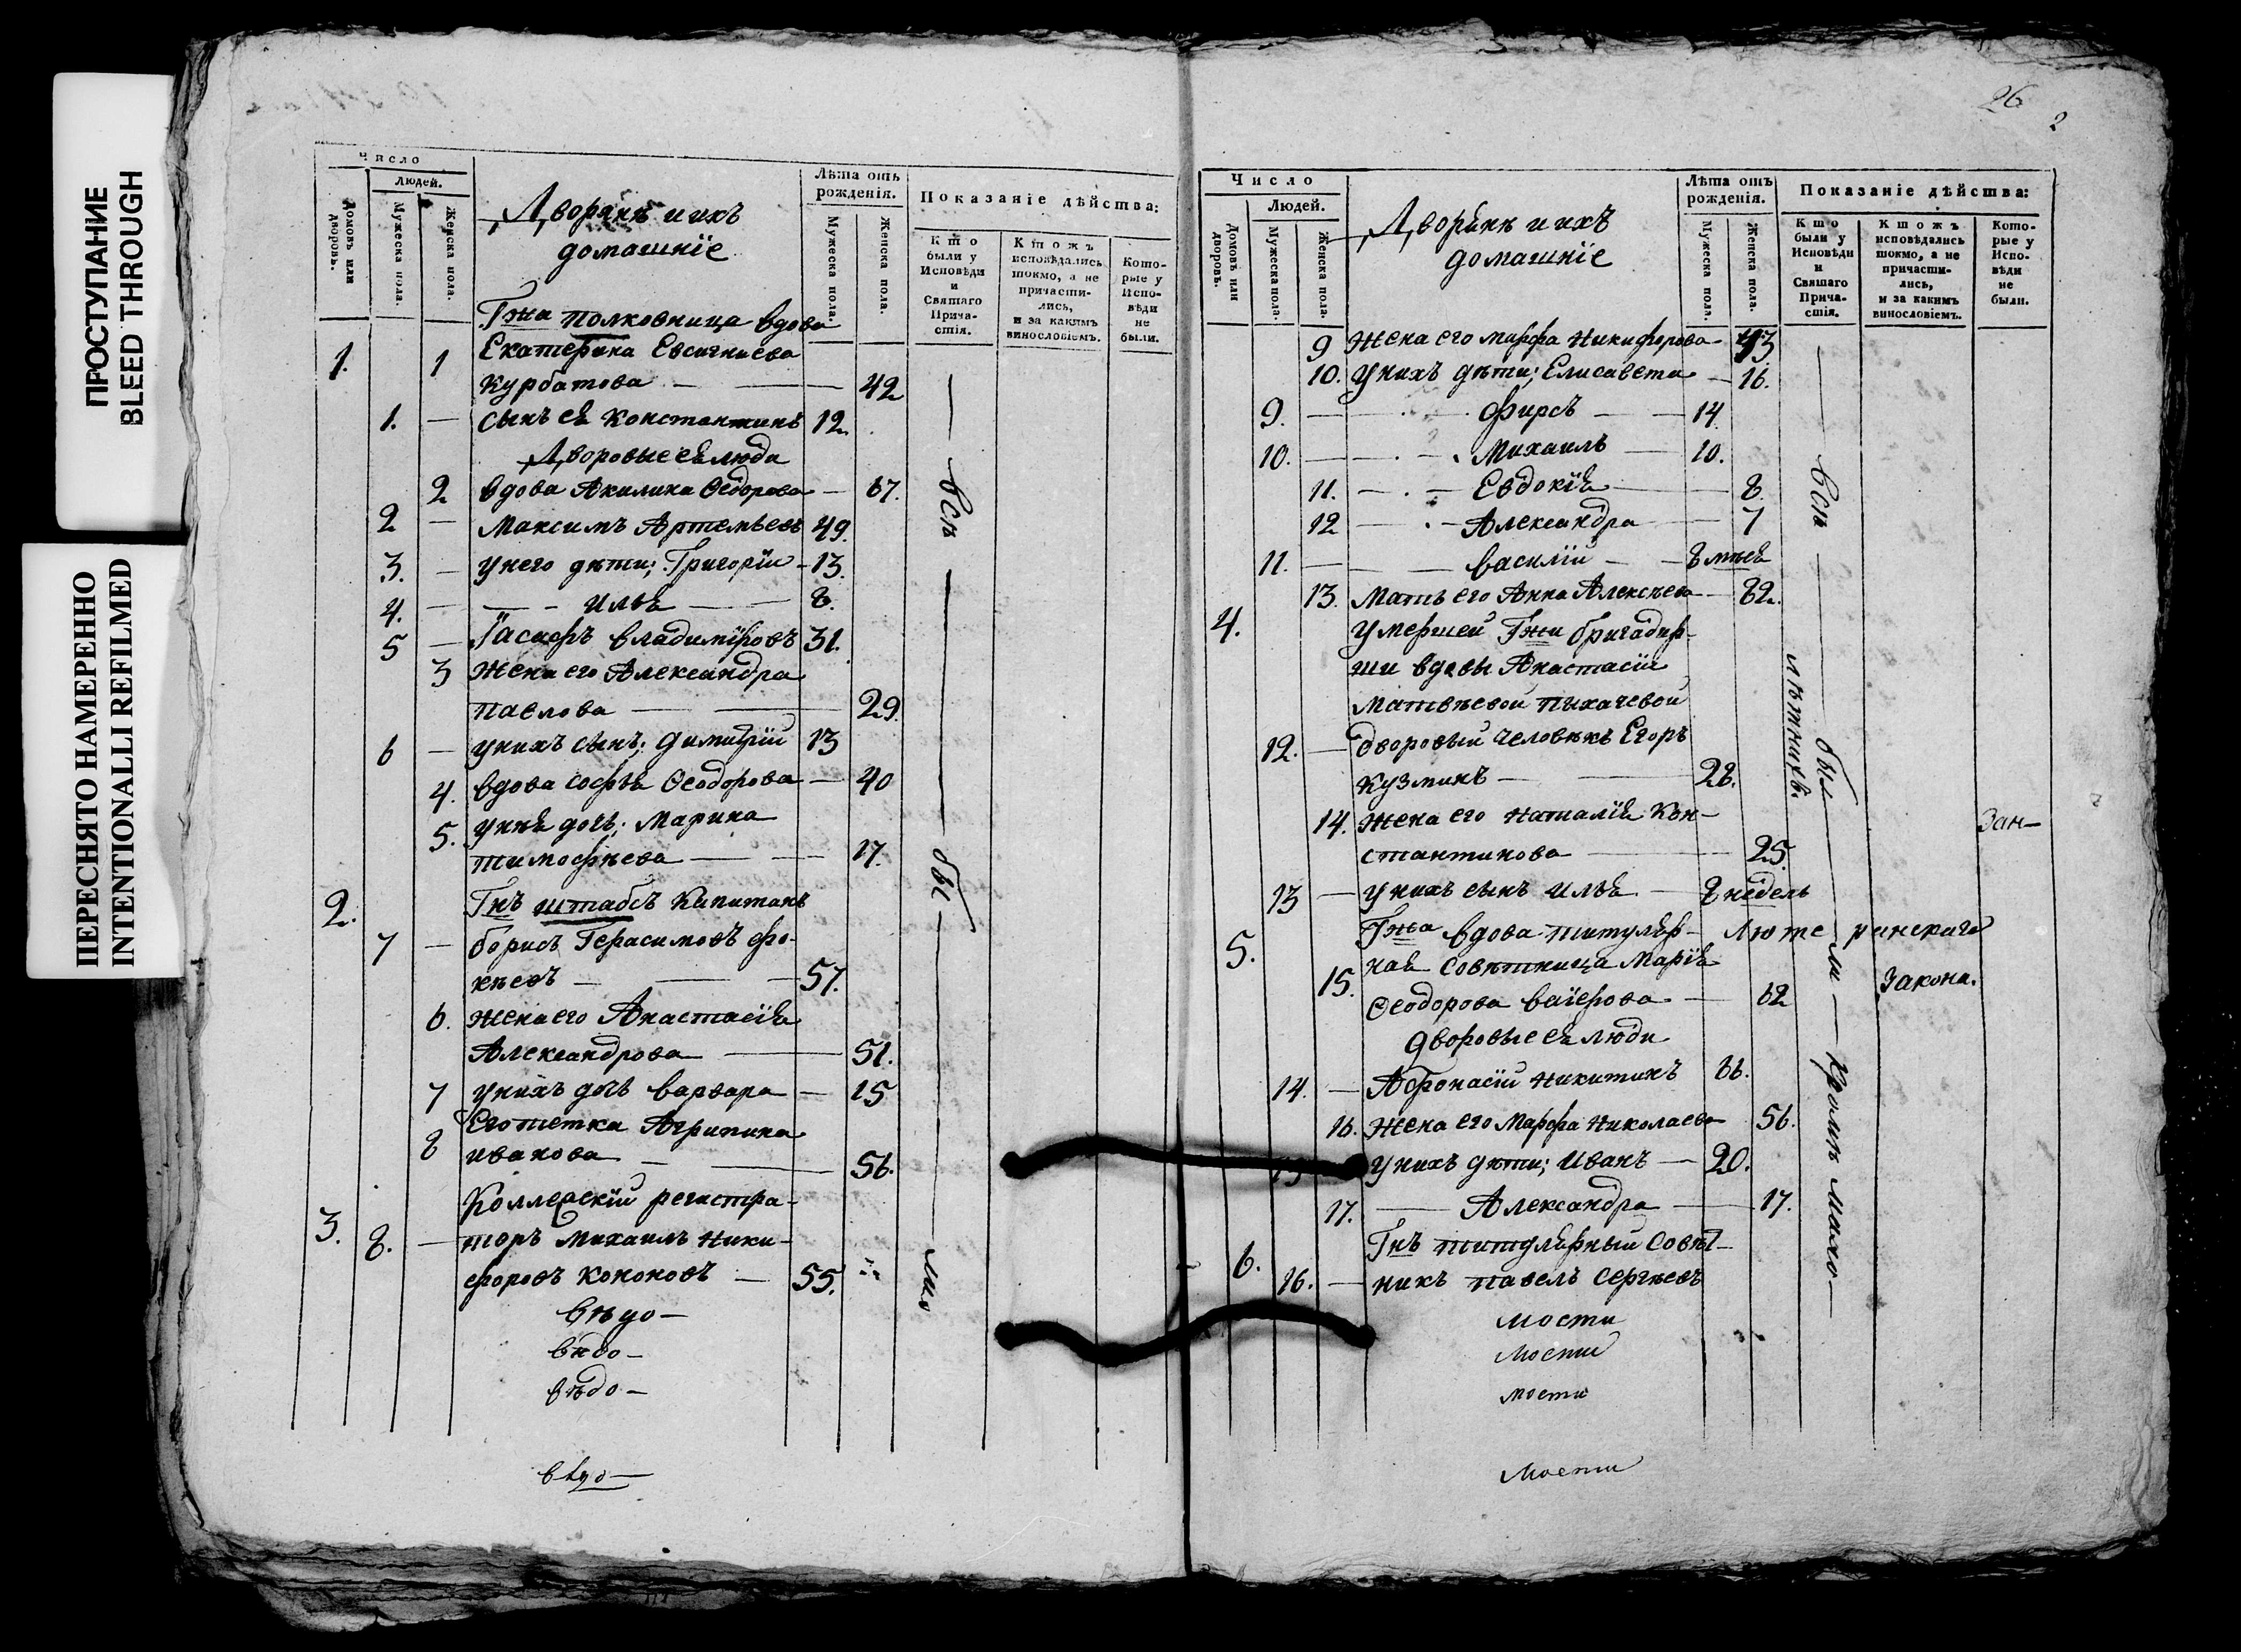 ПРОСТУПАНИЕ
BLEED THROUGH
ПЕРЕСНЯТО НАМЕРЕННО
INTENTIONALLI REFILMED
Число
Людей.
Домовъ или дворовъ.
Мужеска пола.
Женска пола.
Дворянѣ и ихъ
домашніе
Лѣта отъ
рожденія.
Мужеска пола.
Женска пола.
Показаніе дѣйства:
Кто были у Исповѣди и Святаго Прича-стія.
Ктожъ исповѣдались токмо, а не причасти-лись, и за какимъ винословіемъ.
Кото-рые у Испо-вѣди не были.
Гжа полковница вдова
1. 1 Екатерина Евсигниева
Курбатова — — 42
1. — сынъ ея Константинъ 12.
Дворовые ея люди
2 вдова Акилина Ѳедорова — 67.
2 — Максимъ Артемьевъ 49.
3. — У него дѣти; Григорій - 13.
4. — — Илья — 8.
5 — Гасперъ Владиміровъ 31.
3 Жена его Александра
Павлова — — 29.
6 — У нихъ сынъ; Димитрій 13
4. вдова Софья Ѳеодорова — 40
5. У нея дочь; Марина
Тимофѣева — — 17.
2. Гнъ штабсъ Капитанъ
7 — Борисъ Герасимовъ Фо-
кѣевъ — — 57.
6. Жена его Анастасія
Александрова — 51.
7 У нихъ дочь Варвара — 15
Его тетка Агрипина
8 Иванова — — 56.
Коллежскій регистра-
3. 8. — торъ Михаилъ Ники-
форовъ Кононовъ — 55.
всѣ — бы — ли
вѣдо —
вѣдо —
вѣдо —
вѣдо —
26
2
Число
Людей.
Домовъ или дворовъ.
Мужеска пола.
Женска пола.
Дворянѣ и ихъ
домашніе
Лѣта отъ
рожденія.
Мужеска пола.
Женска пола.
Показаніе дѣйства:
Кто были у Исповѣди и Святаго Прича-стія.
Ктожъ исповѣдались токмо, а не причасти-лись, и за какимъ винословіемъ.
Кото-рые у Испо-вѣди не были.
9 Жена его Марфа Никифорова - 43
10. У нихъ дѣти; Елисавета — 16.
9. — Фирсъ — 14.
10. — Михаилъ — 10.
11. — Евдокія — 8.
12 — Александра — 7
11. — Василій — 8 мѣся
13. Мать его Анна Алексѣева — 82.
4. Умершей Гжи бригадир-
ши вдовы Анастасіи
Матвѣевой Пыхачевой
12. — дворовый человѣкъ Егоръ
Кузминъ — 28.
14. Жена его Наталія Кон-
стантинова — 25.
13 — У нихъ сынъ Илья — 8 недель
5. Гжа вдова титуляр-
15. ная Совѣтница Марія
Ѳеодорова Ваіерова — 62
Зан—
Люте ранскаго
Закона.
дворовые ея люди
14. — Афонасій Никитинъ 66.
16. Жена его Марфа Николаева 56.
15 У нихъ дѣти; Иванъ — 20.
17. — Александра — 17.
6. Гнъ титулярный Совѣт-
16. — никъ Павелъ Сергѣевъ
всѣ — бы — ли — кромѣ мало —
лѣтнихъ.
мости
мости
мости
мости